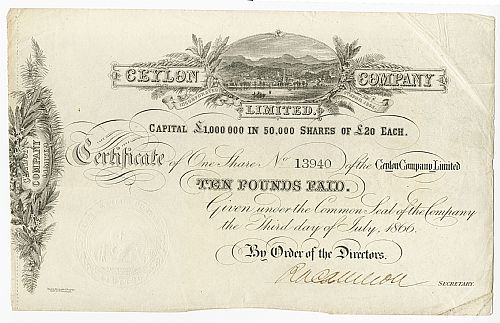 CEYLON COMPANY
LIMITED.
CAPITAL £1,000 000 IN 50,000 SHARES OF £20 EACH.
Certificate of One Share No 13940 of the Ceylon Company Limited
TEN POUNDS PAID.
Given under the Common Seal of the Company
the Third day of July, 1866.
By Order of the Directors.
SECRETARY.
CEYLON
COMPANY
LIMITED